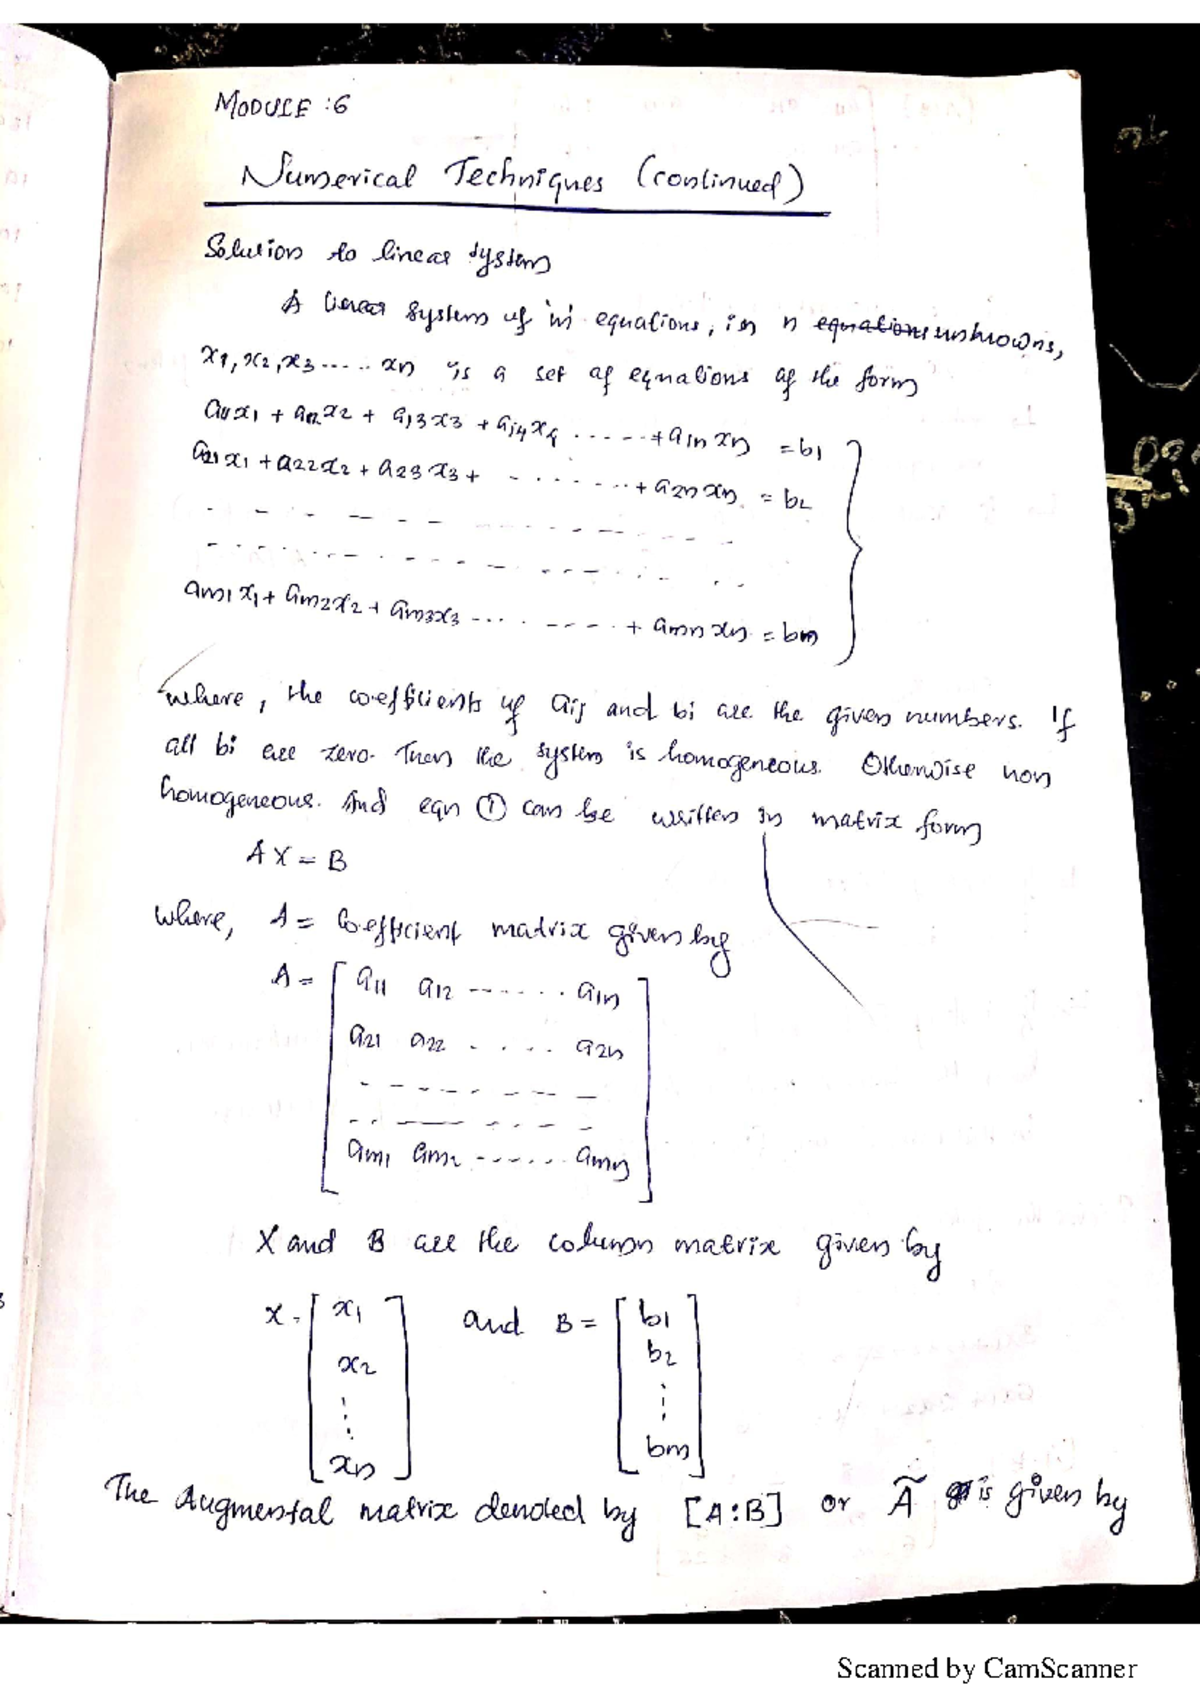 MODULE : 6
Numerical Techniques (continued)
Solution to linear system
A linear system of 'm' equations, in n equations unknowns,
x1, x2, x3 ..... xn is a set of equations of the form
a11x1 + a12x2 + a13x3 + a14x4 ......+ a1n xn = b1
a21x1 + a22x2 + a23x3 + - ....... + a2n xn = b2
am1x1 + am2x2 + am3x3 ---. ----. + amn xn = bm
where, the coefficients of aij and bi are the given numbers. If
all bi are zero. Then the system is homogeneous. Otherwise non
homogeneous. And eqn ① can be written in matrix form
AX = B
where, A = Coefficient matrix given by
A = [ a11 a12 ------. . a1n
a21 a22 . . . . a2n
am1 am2 ------. amn ]
X and B are the column matrix given by
X = [ x1 x2 ⋮ xn ] and B = [ b1 b2 ⋮ bm ]
The Augmental matrix denoted by [A:B] or Ã is given by
Scanned by CamScanner